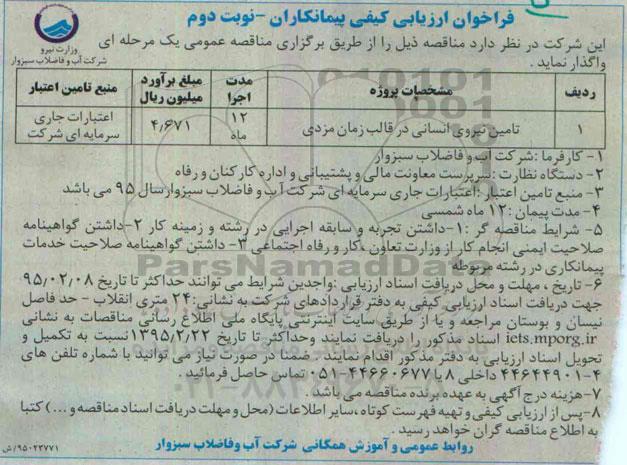 فراخوان ارزیابی کیفی پیمانکاران -نوبت دوم
وزارت نیرو
شرکت آب و فاضلاب سبزوار
این شرکت در نظر دارد مناقصه ذیل را از طریق برگزاری مناقصه عمومی یک مرحله ای
واگذار نماید .
ردیف مشخصات پروژه مدت اجرا مبلغ برآورد میلیون ریال منبع تامین اعتبار
۱ تامین نیروی انسانی در قالب زمان مزدی ۱۲ ماه ۴٫۶۷۱ اعتبارات جاری سرمایه ای شرکت
۱- کارفرما :شرکت آب و فاضلاب سبزوار
۲- دستگاه نظارت :سرپرست معاونت مالی و پشتیبانی و اداره کارکنان و رفاه
۳- منبع تامین اعتبار :اعتبارات جاری سرمایه ای شرکت آب و فاضلاب سبزوار سال ۹۵ می باشد
۴- مدت پیمان :۱۲ ماه شمسی
۵- شرایط مناقصه گر :۱-داشتن تجربه و سابقه اجرایی در رشته و زمینه کار ۲-داشتن گواهینامه
صلاحیت ایمنی انجام کار از وزارت تعاون ،کار و رفاه اجتماعی ۳- داشتن گواهینامه صلاحیت خدمات
پیمانکاری در رشته مربوطه
۶- تاریخ ، مهلت و محل دریافت اسناد ارزیابی :واجدین شرایط می توانند حداکثر تا تاریخ ۹۵/۰۲/۰۸
جهت دریافت اسناد ارزیابی کیفی به دفتر قراردادهای شرکت به نشانی:۲۴ متری انقلاب - حد فاصل
نیسان و بوستان مراجعه و یا از طریق سایت اینترنتی پایگاه ملی اطلاع رسانی مناقصات به نشانی
iets.mporg.ir اسناد مذکور را دریافت نمایند وحداکثر تا تاریخ ۱۳۹۵/۲/۲۲ نسبت به تکمیل و
تحویل اسناد ارزیابی به دفتر مذکور اقدام نمایند . ضمنا در صورت نیاز می توانید با شماره تلفن های
۴-۴۴۶۴۴۹۰۱ داخلی ۸ یا ۴۴۶۶۰۶۷۷-۰۵۱ تماس حاصل فرمائید .
۷-هزینه درج آگهی به عهده برنده مناقصه می باشد .
۸-پس از ارزیابی کیفی و تهیه فهرست کوتاه ،سایر اطلاعات (محل و مهلت دریافت اسناد مناقصه و ...) کتبا
به اطلاع مناقصه گران خواهد رسید .
روابط عمومی و آموزش همگانی شرکت آب وفاضلاب سبزوار
۹۵۰۲۳۷۷۱/ش
ParsNamadData